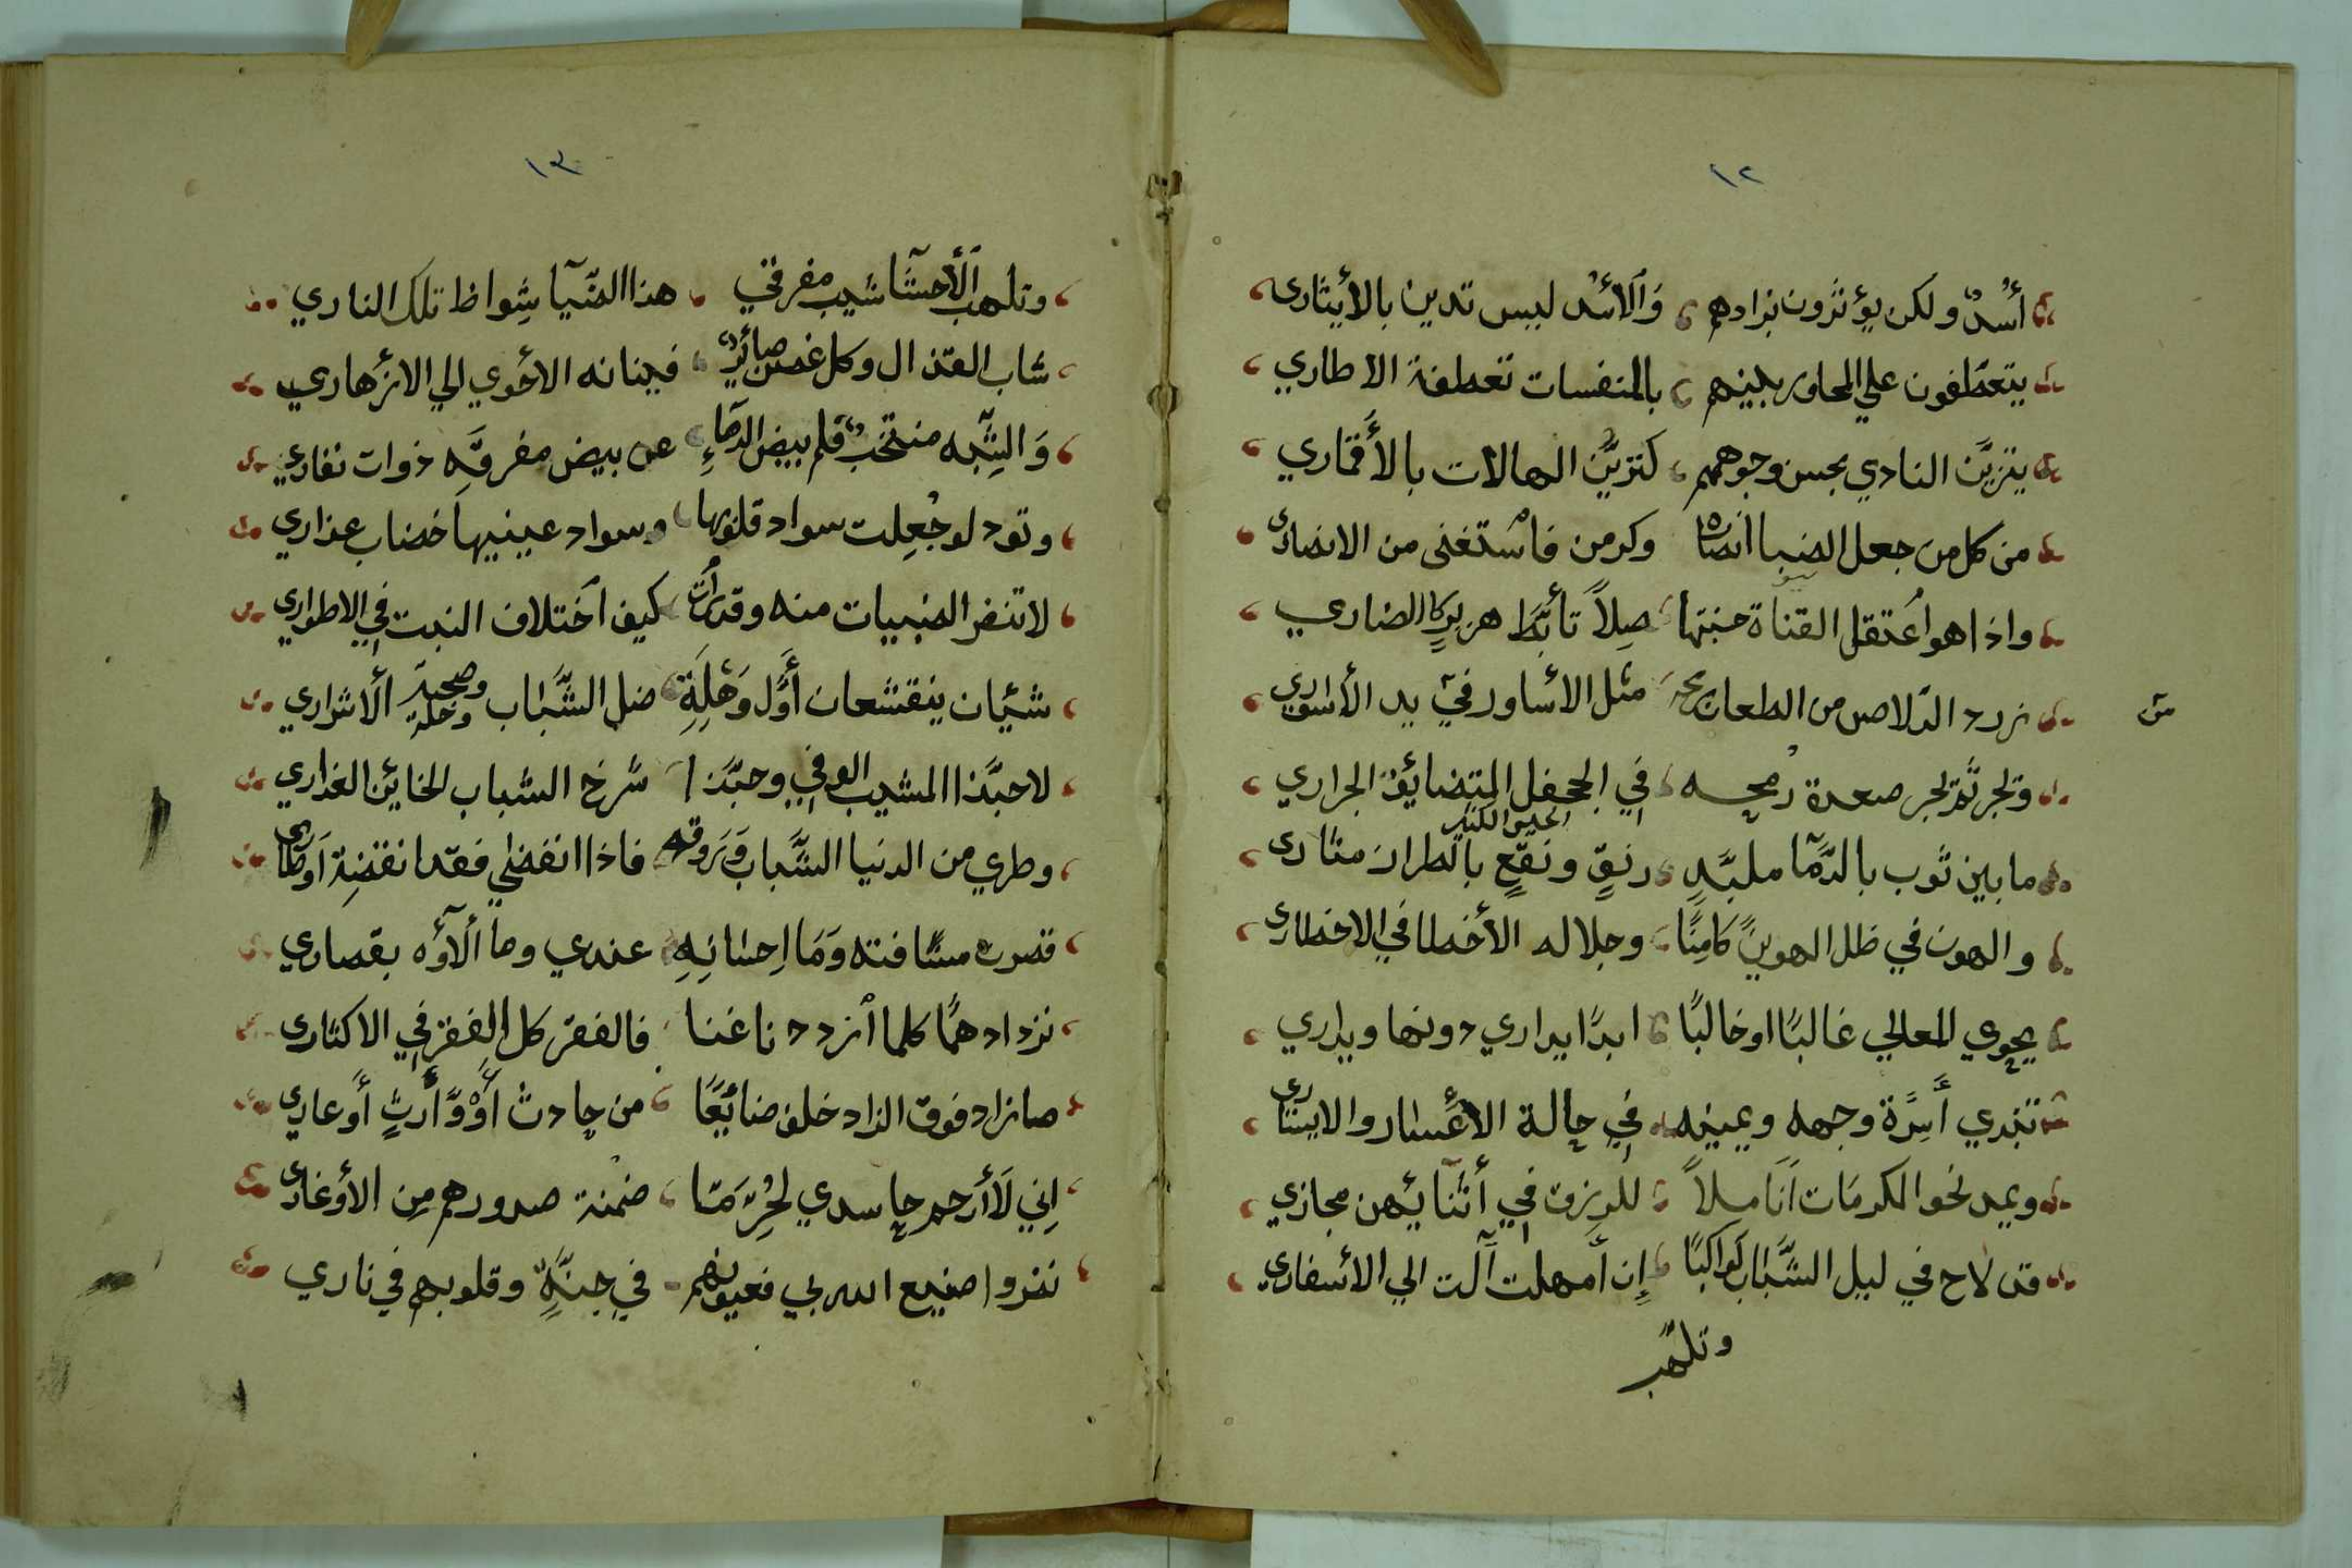 ١٢
أسْدٌ ولكن يؤثرون بزادهم وَالأسْد ليس تدين بالأيثارى
يتعطفون علي المحاور بينهم بالمنفسات تعطفة الاطاري
يتزيَّن النادي بحسن وجوههم كتزيَّن الهالات بالأقماري
من كل من جعل الضبا انصاره وكرمن فاسْتغنى من الانصارى
واذا هو اعتقل القناة حسبتها صِلاً تأبَّط هزبرٍ الضاري
زرد الدلاص من الطعان برمحه مثل الاساور في يد الأسواري
ويجر ثم يجر صعدة رمحه في الجحفل المتضائق الجراري
ما بين ثوب بالدمآ ملبَّدٍ رنقٍ ونقعٍ بالطراد مثارى
والهون في ظل الهوينً كامنًا وجلاله الأخطا في الاخطارى
يحوي المعالي غالبًا او خالبًا ابدًا يداري دونها ويداري
تبدي أسِرَّة وجهه ويمينه في حالة الاعسار والايسارى
ويمد نحو المكرمَات أنَاملاً للرزق في أثنائهن مجازي
قد لاح في ليل الشَّباب كواكبًا إن أمهلت آلت الي الأسفاري
وتلهب
١٣
وتلهب الأحشآ شيب مفرقي هذا الضيآ شِواظ تلك الناري
شاب القذال وكل غصن صائرٌ فينانه الأحوي الي الازهاري
وَالشبه منجذب فلم بيض الدماءِ عن بيض مفرقه ذوات نفاري
وتود لو جُعِلت سواد قلوبها وسواد عينيها خضاب عذاري
لا تنفر الضبيات منه وقد رأت كيف اختلاف النبت في الاطواري
شيئان ينقشعان أوَّل وَهْلَةِ ضل الشَّباب وصحبة الاشراري
لا حبَّذا المشيب الوفي وحبَّذا شرخ الشباب الخائن الغداري
وطري من الدنيا الشَّباب وَرَوقه فاذا انقضي فقد انقضة اوطارى
قصرت مسَافته وَمَا اِحسَانِهِ عندي وما ألآؤه بقصاري
نزداد همًا كلما ازددنا غنا فالفقر كل الفقر في الاكثارى
ما زاد فوق الزاد خلف ضائعًا من حادث أوْ وَّارثٍ أوعارى
اِني لَأرحم حاسدي لحْرِّمَا ضمنة صدورهم مِن الأوغارى
نضروا صنيع الله بي فعيونهم في جنةٍ وقلوبهم في ناري